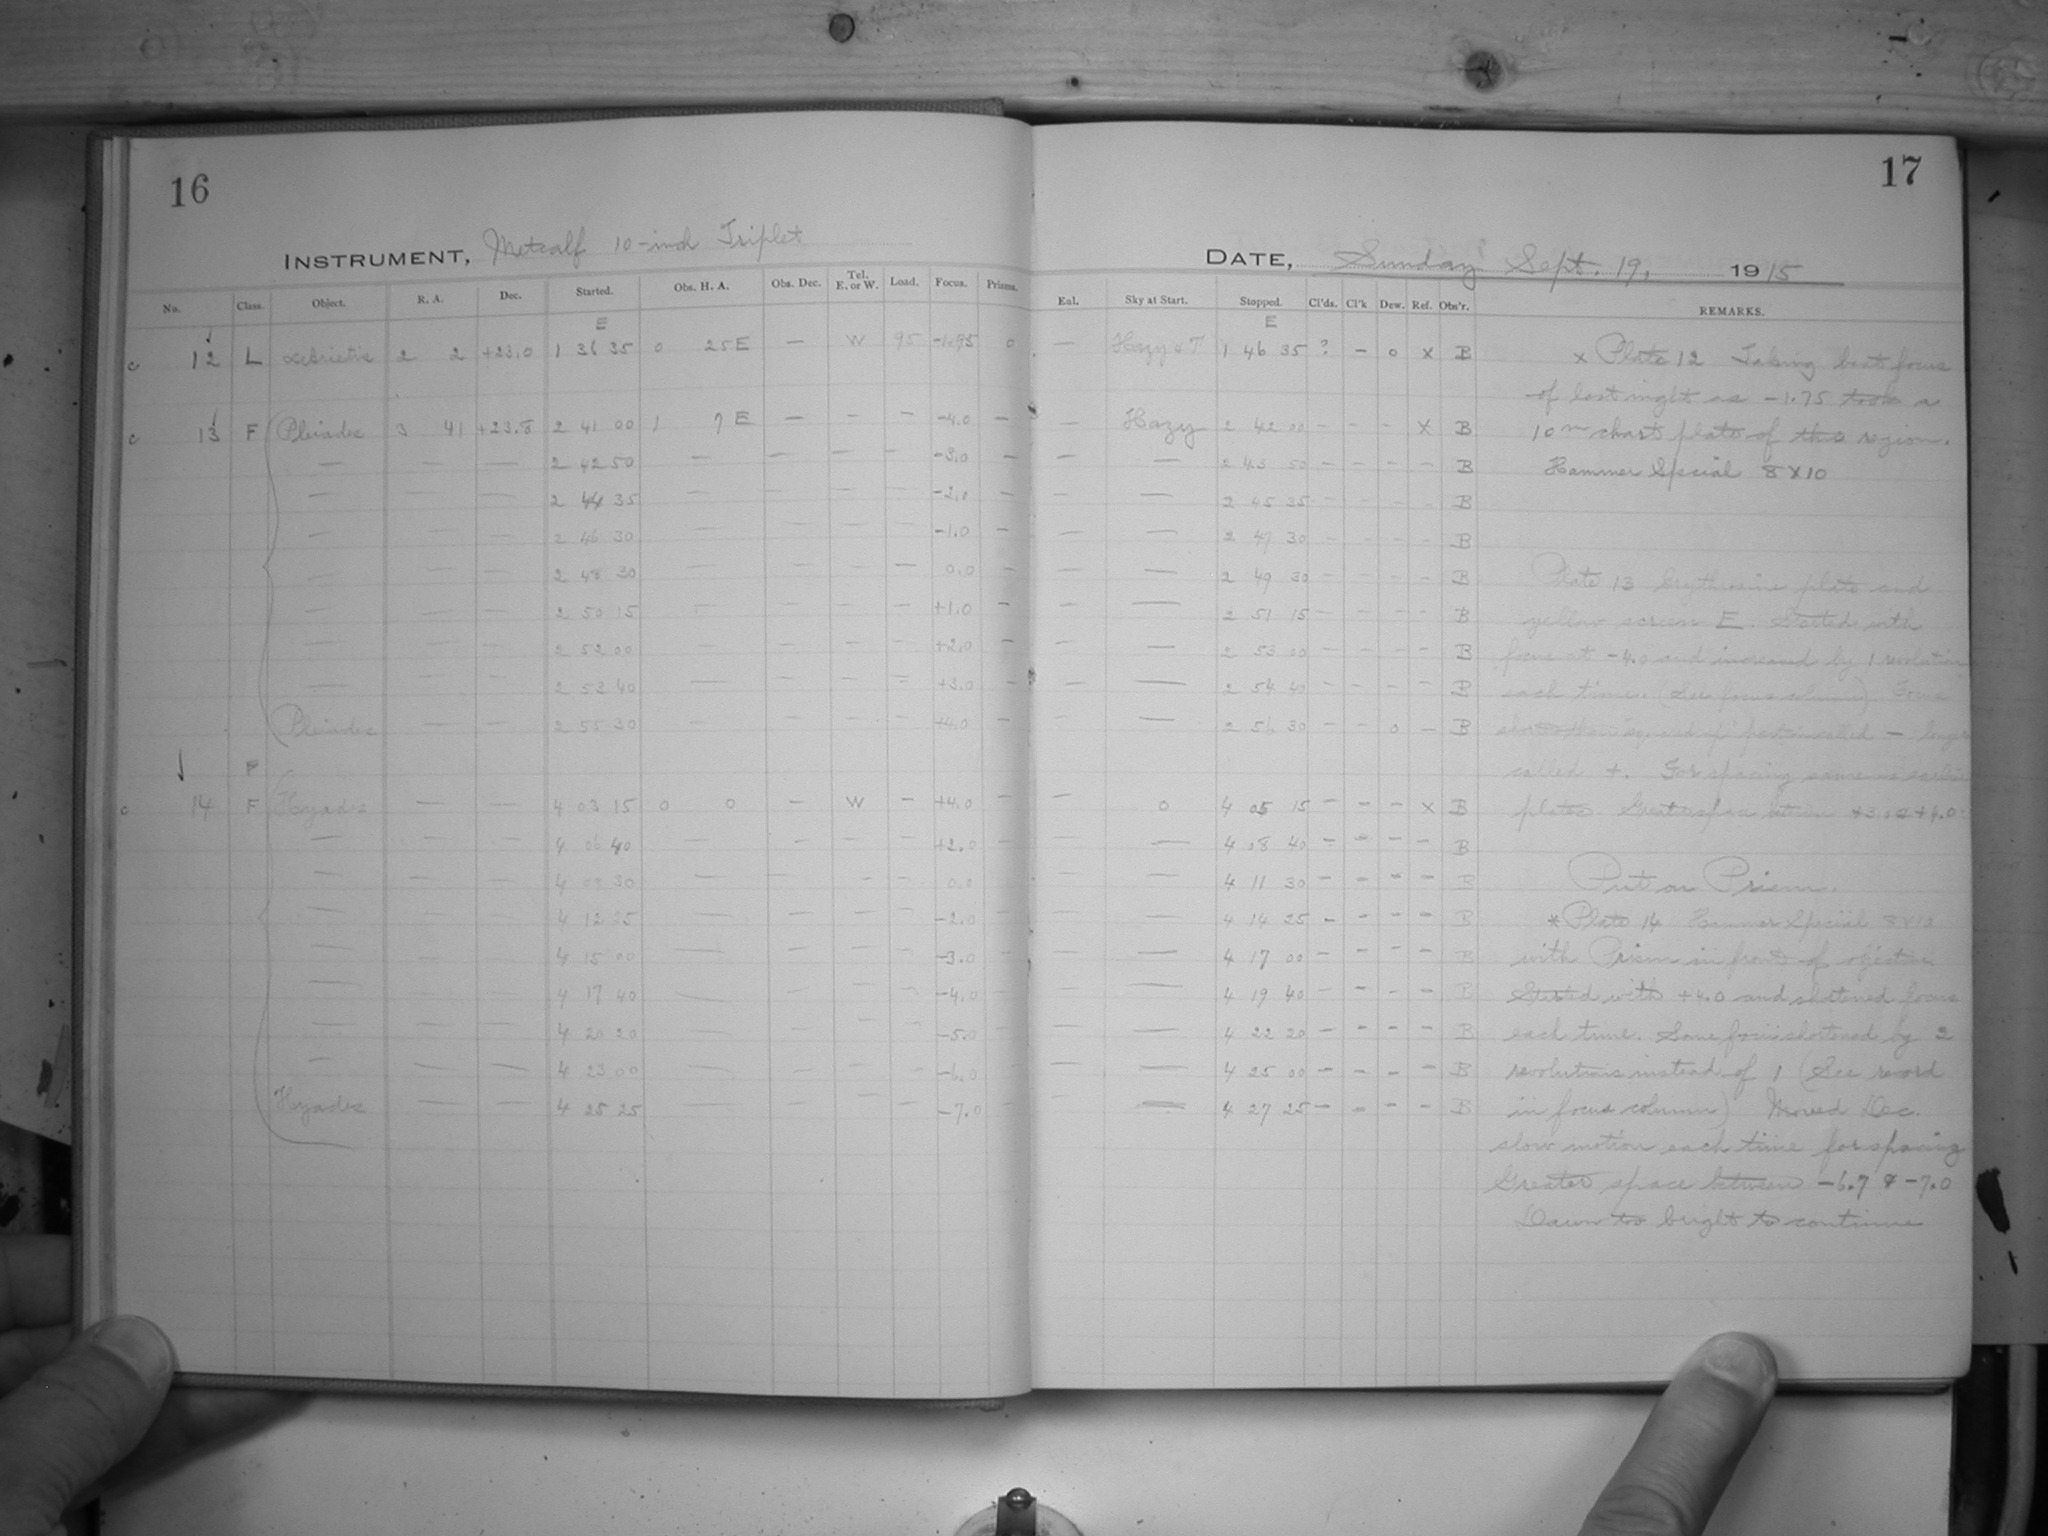 16
INSTRUMENT, Metcalf 10-inch Triplet
No. Class. Object. R. A. Dec. Started. Obs. H. A. Obs. Dec. Tel. E. or W. Load. Focus. Prisms.
E
c 12 L 2 2 +23.0 1 36 35 0 25 E — W 95 0
c 13 F Pleiades 3 41 +23.8 2 41 00 1 7 E — — — -4.0 —
— — — 2 42 50 — — — — -3.0 —
— — — 2 44 35 — — — — -2.0 —
— — — 2 46 30 — — — — -1.0 —
— — — 2 48 30 — — — — 0.0 —
— — — 2 50 15 — — — — +1.0 —
— — — 2 52 00 — — — — +2.0 —
— — — 2 53 40 — — — — +3.0 —
Pleiades — — 2 55 30 — — — — +4.0 —
F
c 14 F Hyades — — 4 03 15 0 0 — W — +4.0 —
— — — 4 06 40 — — — — +2.0 —
— — — 4 09 30 — — — — 0.0 —
— — — 4 12 25 — — — — -2.0 —
— — — 4 15 00 — — — — -3.0 —
— — — 4 17 40 — — — — -4.0 —
— — — 4 20 20 — — — — -5.0 —
— — — 4 23 00 — — — — -6.0 —
Hyades — — 4 25 25 — — — — -7.0 —
17
DATE, Sunday Sept. 19, 1915
Eml. Sky at Start. Stopped. Cl'ds. Cl'k Dew. Ref. Obs'r. REMARKS.
E
— Hazy 1 46 35 ? — 0 x B
— Hazy 2 42 00 — — — x B
— — 2 43 50 — — — — B
— — 2 45 35 — — — — B
— — 2 47 30 — — — — B
— — 2 49 30 — — — — B
— — 2 51 15 — — — — B
— — 2 53 00 — — — — B
— — 2 54 40 — — — — B
— — 2 56 30 — — 0 — B
— 0 4 05 15 — — — x B
— — 4 08 40 — — — — B
— — 4 11 30 — — — — B
— — 4 14 25 — — — — B
— — 4 17 00 — — — — B
— — 4 19 40 — — — — B
— — 4 22 20 — — — — B
— — 4 25 00 — — — — B
— — 4 27 25 — — — — B
x Plate 12 Taking best focus
of last night as -1.75 took a
10m chart plate of this region.
Hammer Special 8 x 10
Plate 13 Erythrosine plate and
yellow screen E. Started with
focus at -4.0 and increased by 1 revolution
each time. (See focus column). Focus
called — longer
called +. For spacing same as earlier
plates. Greater space between +3.0 & +4.0
Put on Prism.
* Plate 14 Hammer Special 8 x 10
with Prism in front of objective
Started with +4.0 and shortened focus
each time. Some foci shortened by 2
revolutions instead of 1 (See record
in focus column) Moved Dec.
slow motion each time for spacing
Greater space between -6.7 & -7.0
Dawn too bright to continue